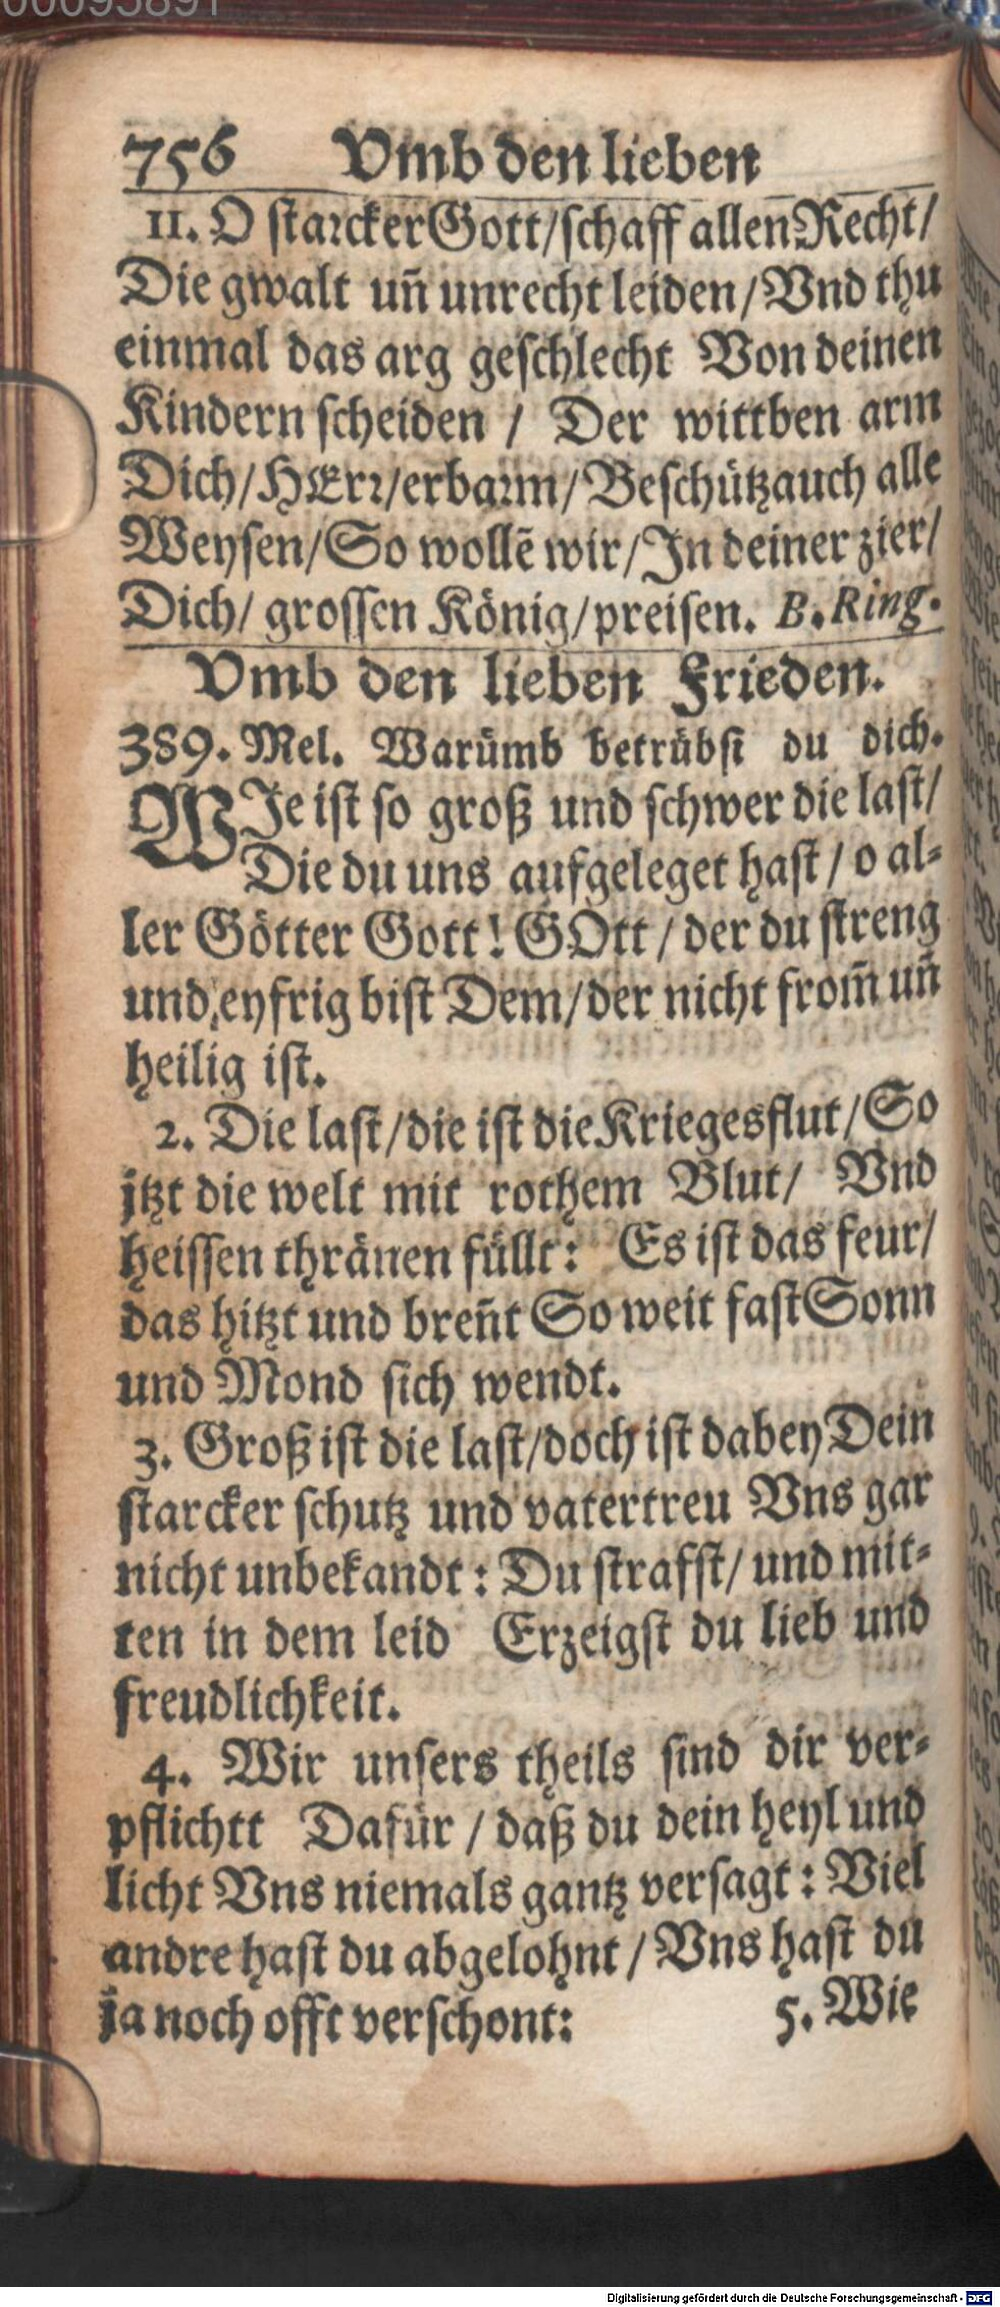 00095891
756 Vmb den lieben
11. O starcker Gott/schaff allen Recht/
Die gwalt uñ unrecht leiden/Vnd thu
einmal das arg geschlecht Von deinen
Kindern scheiden / Der wittben arm
Dich/HErr/erbarm/Beschütz auch alle
Weysen/So wollē wir/In deiner zier/
Dich/ grossen König/preisen. B. Ring.
Vmb den lieben Frieden.
389. Mel. Warümb betrübst du dich.
WJe ist so groß und schwer die last/
Die du uns aufgeleget hast / o al-
ler Götter Gott! GOtt / der du streng
und eyfrig bist Dem/der nicht from̃ uñ
heilig ist.
2. Die last/die ist die Kriegesflut/So
jtzt die welt mit rothem Blut/ Vnd
heissen thränen füllt: Es ist das feur/
das hitzt und breñt So weit fast Sonn
und Mond sich wendt.
3. Groß ist die last/doch ist dabey Dein
starcker schutz und vatertreu Vns gar
nicht unbekandt: Du strafst/ und mit-
ten in dem leid Erzeigst du lieb und
freudlichkeit.
4. Wir unsers theils sind dir ver-
pflichtt Dafür / daß du dein heyl und
licht Vns niemals gantz versagt: Viel
andre hast du abgelohnt / Vns hast du
ja noch offt verschont: 5. Wie
Digitalisierung gefördert durch die Deutsche Forschungsgemeinschaft - DFG